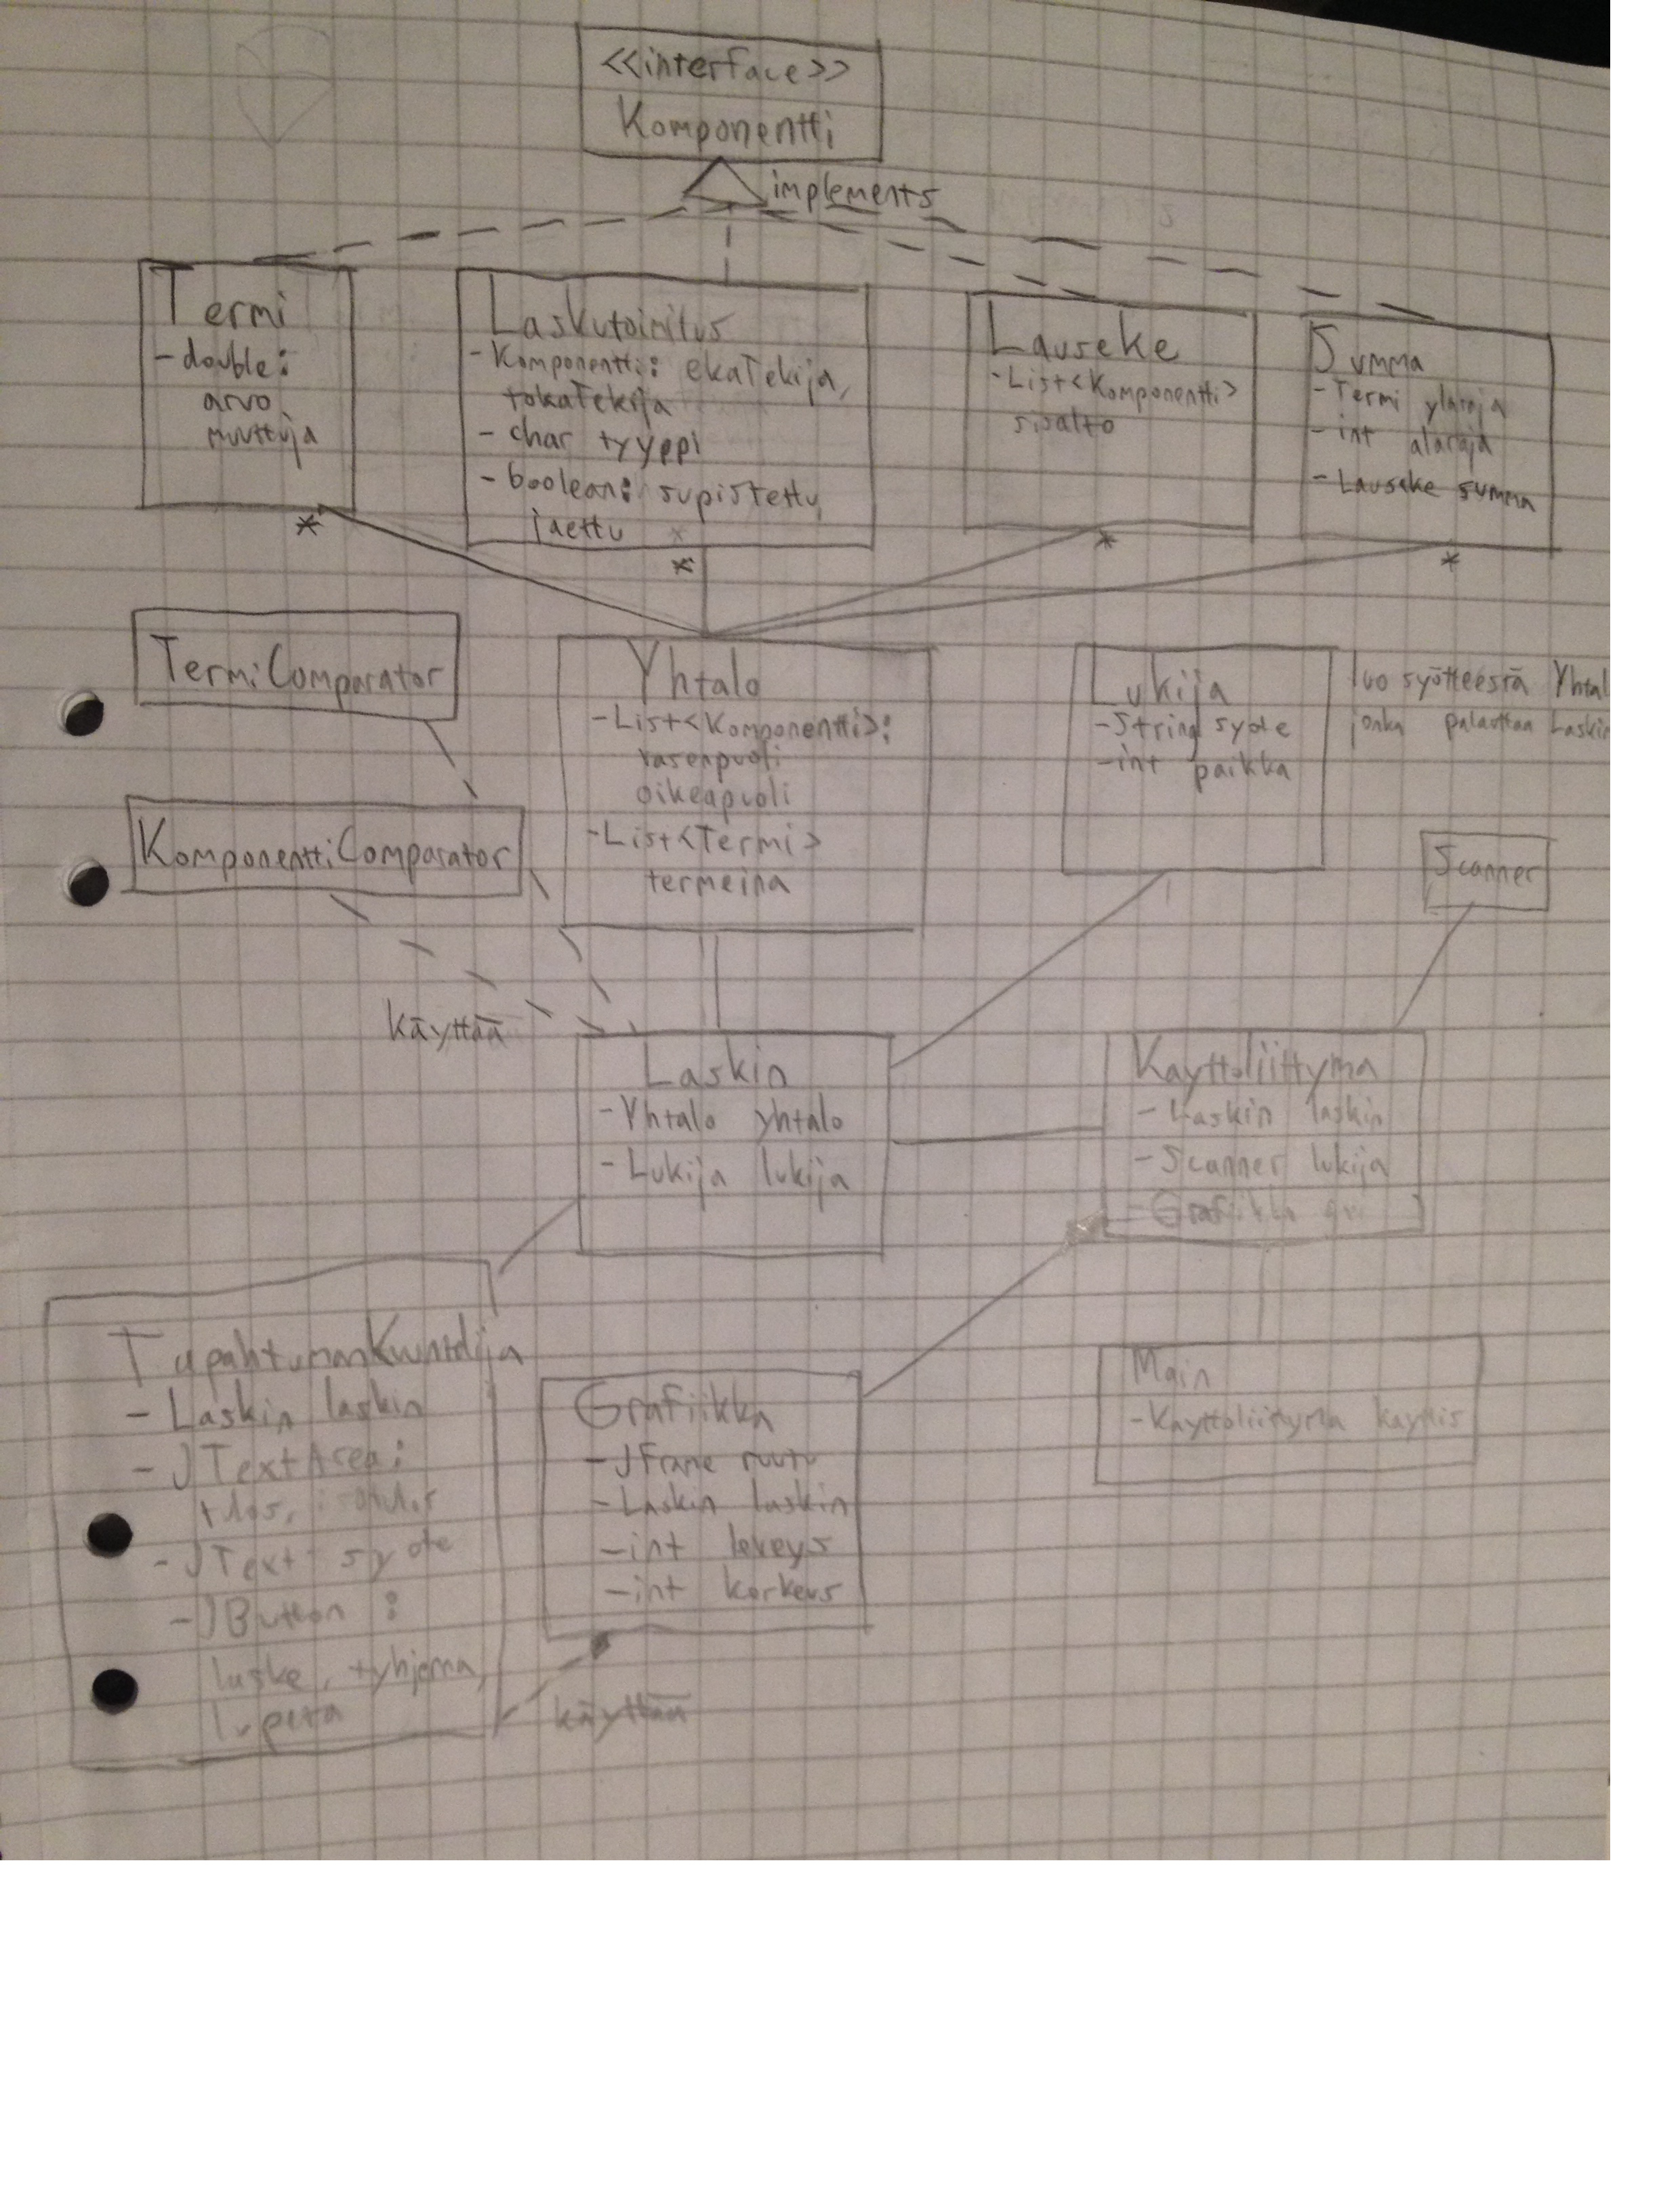 <<interface>>
Komponentti
implements
Termi
- double:
arvo
muuttuja
*
Laskutoimitus
- Komponentti: ekaTekija,
tokaTekija
- char tyyppi
- boolean: supistettu,
jaettu
*
Lauseke
- List<Komponentti>
sisalto
*
Summa
- Termi ylaraja
- int alaraja
- Lauseke summa
*
TermiComparator
KomponenttiComparator
käyttää
Yhtalo
- List<Komponentti>:
vasenpuoli
oikeapuoli
- List<Termi>
termeina
Lukija
- String syote
- int paikka
luo syötteestä Yhtal
jonka palauttaa Laskin
Scanner
Laskin
- Yhtalo yhtalo
- Lukija lukija
Kayttoliittyma
- Laskin laskin
- Scanner lukija
- Grafiikka
TapahtumanKuuntelija
- Laskin laskin
- JTextArea:
tulos,
- JText syote
- JButton :
laske, tyhjenna,
lopeta
Grafiikka
- JFrame ruutu
- Laskin laskin
- int leveys
- int korkeus
käyttää
Main
- Kayttoliittyma kayttis